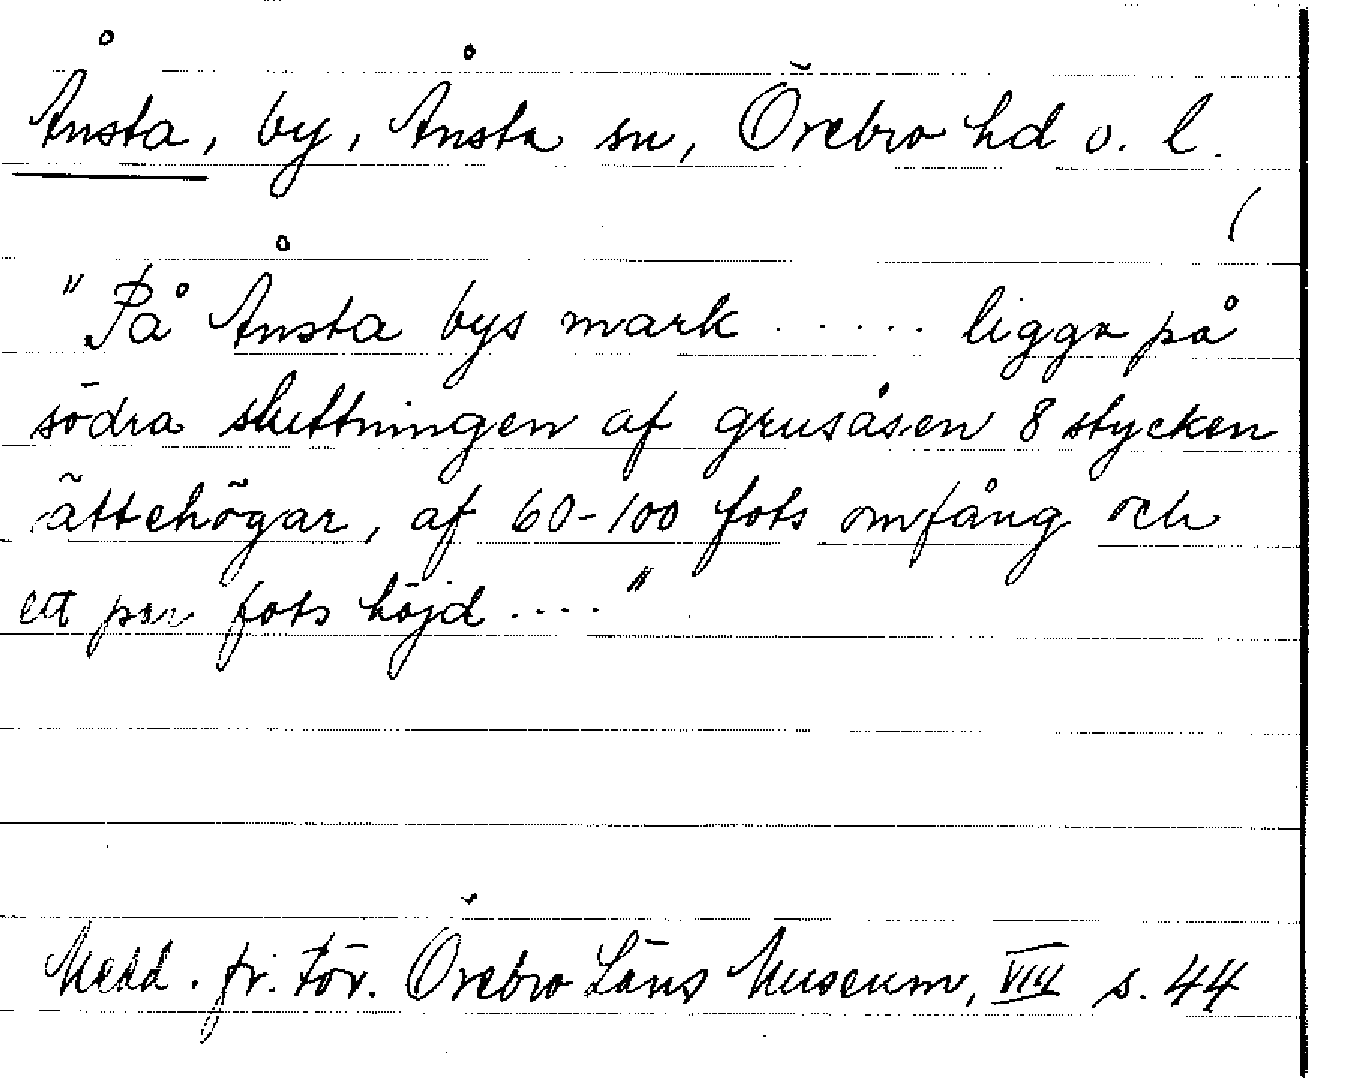 Ånsta, by, Ånsta sn, Örebro hd o. l.
"På Ånsta bys mark ..... ligga på
södra sluttningen af grusåsen 8 stycken
ättehögar, af 60-100 fots omfång och
ett par fots höjd ...."
Medd. fr. För. Örebro Läns Museum, VIII s. 44